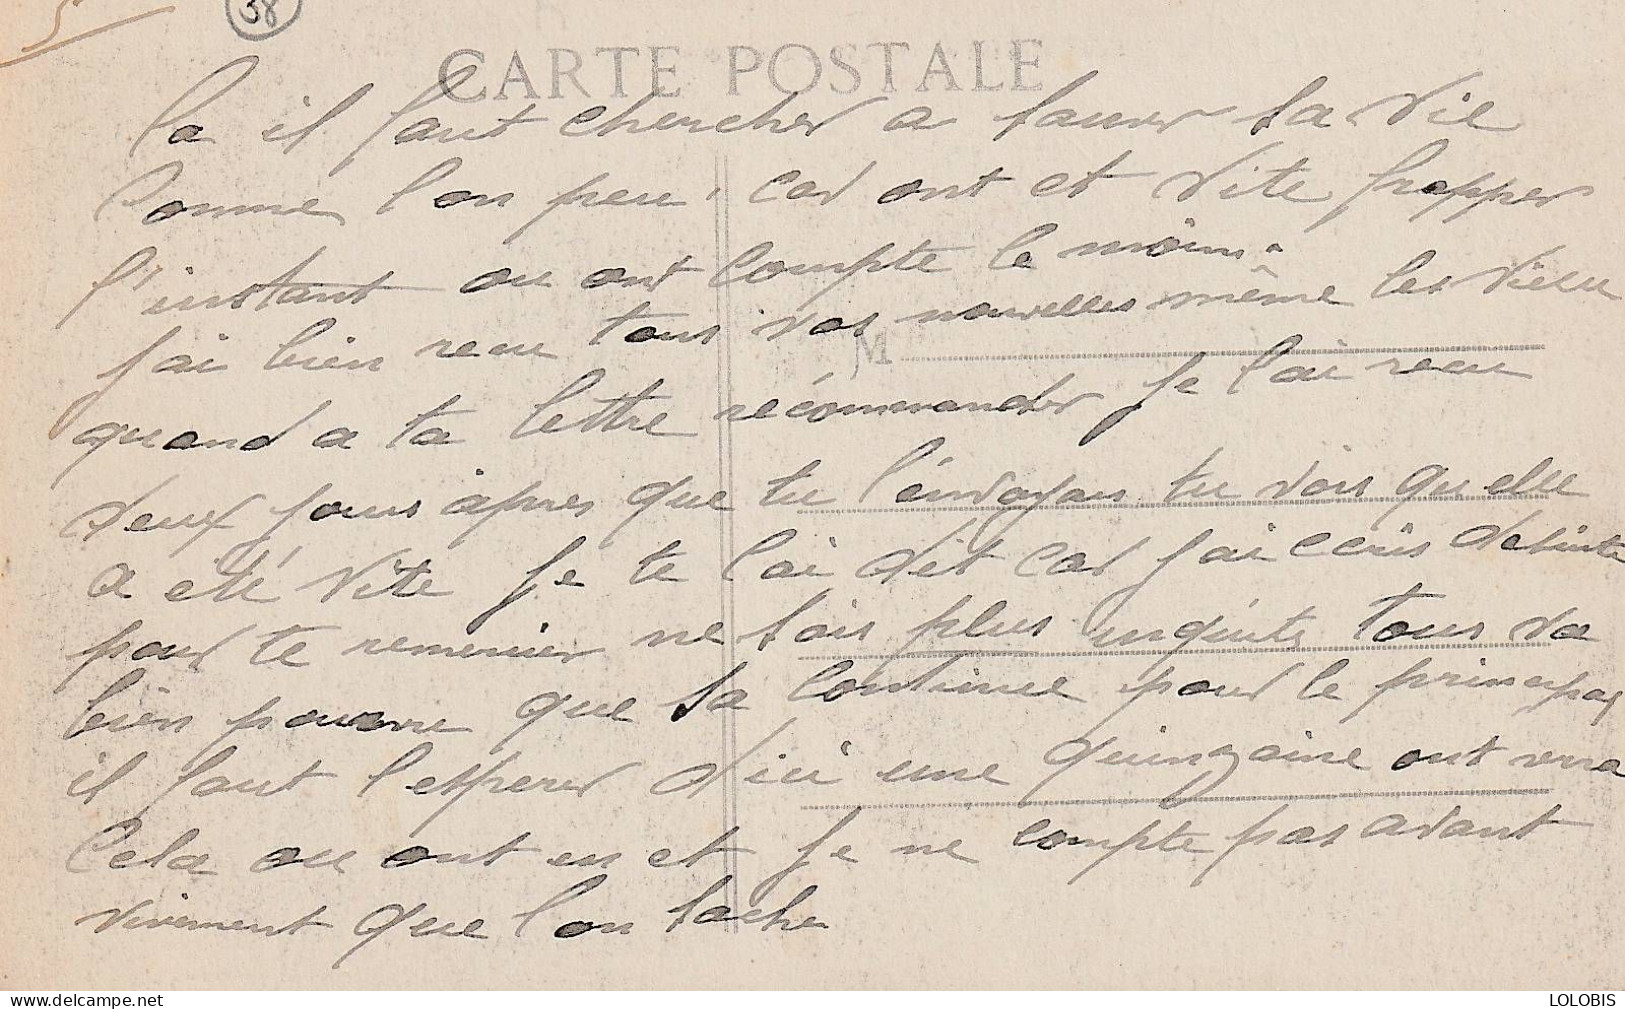 38
CARTE POSTALE
la il faut chercher a sauver sa vie
comme l'on peu, car ont et vite frapper
l'instant ou ont compte le moins.
j'ai bien recu tous vos nouvelles même les vieu
M
quand a ta lettre récommander je l'ai recu
deux jours après que tu l'envoyas tu vois qu'elle
a été vite je te l'ai dit car j'ai ecris desuite
pour te remercier ne sois plus inquiete tous va
bien pourvu que sa continue pour le principal
il faut l'esperer d'ici une quinzaine ont verra
Cela ou ont en et je ne compte pas avant
vivement que l'on sache
www.delcampe.net
LOLOBIS